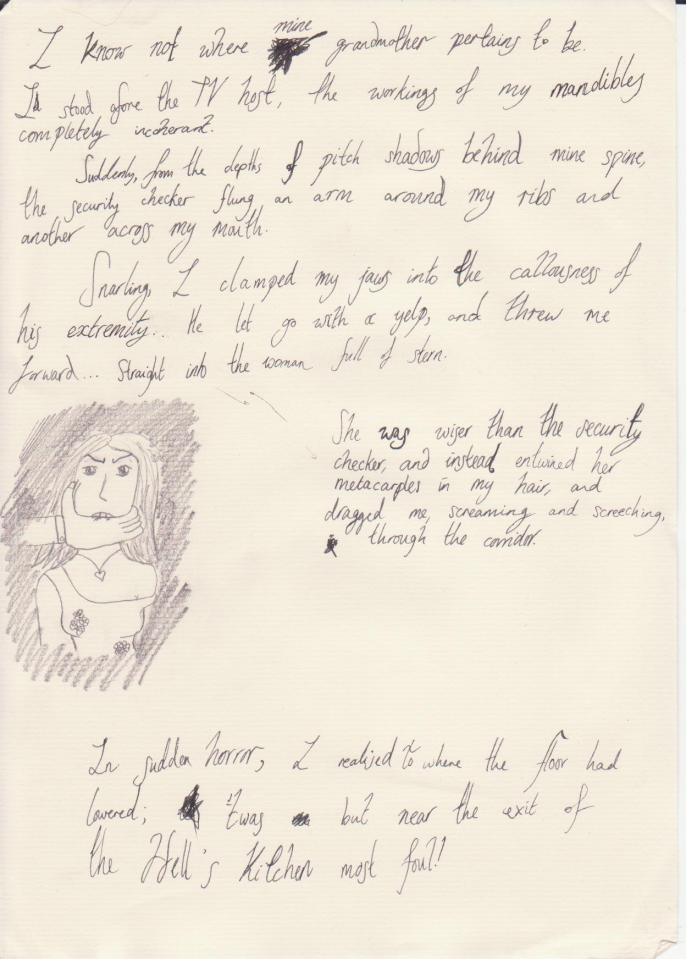 I know not where mine grandmother pertains to be.
I stood afore the TV host, the workings of my mandibles
completely incoherant.
Suddenly, from the depths of pitch shadows behind mine spine,
the security checker flung an arm around my ribs and
another across my mouth.
Snarling, I clamped my jaws into the callousness of
his extremity... He let go with a yelp, and threw me
forward... straight into the woman full of stern.
She was wiser than the security
checker, and instead entwined her
metacarples in my hair, and
dragged me, screaming and screeching,
through the corridor.
In sudden horror, I realised to where the floor had
lowered; 'twas but near the exit of
the Hell's Kitchen most foul!